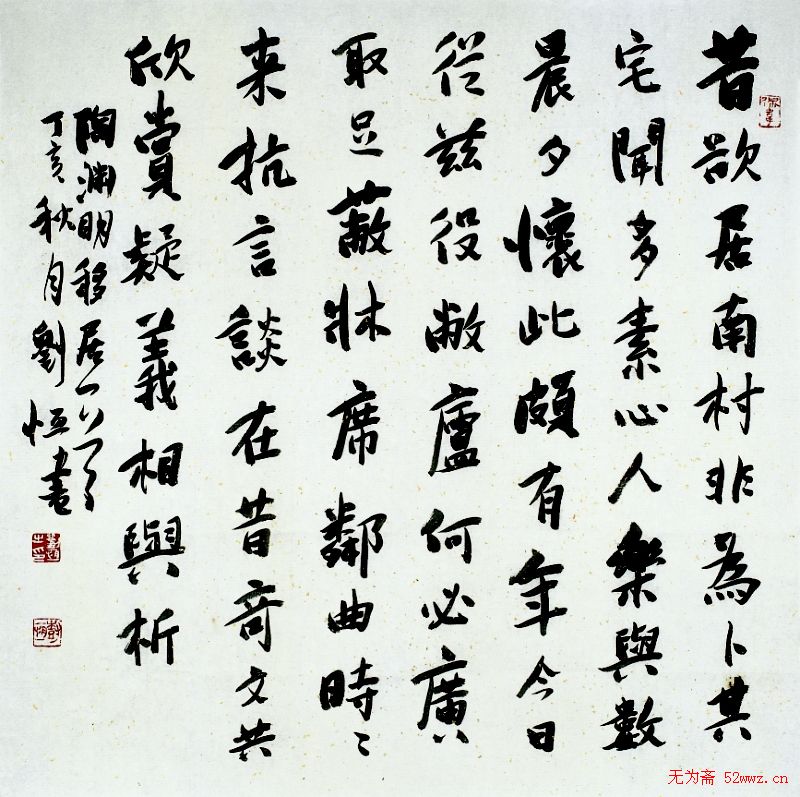 昔欲居南村非為卜其
宅聞多素心人樂與數
晨夕懷此頗有年今日
從茲役敝廬何必廣
取足蔽牀席鄰曲時〻
来抗言談在昔奇文共
欣賞疑義相與析
陶渊明移居一首
丁亥秋月劉恒書
无为斋 52wwz.cn